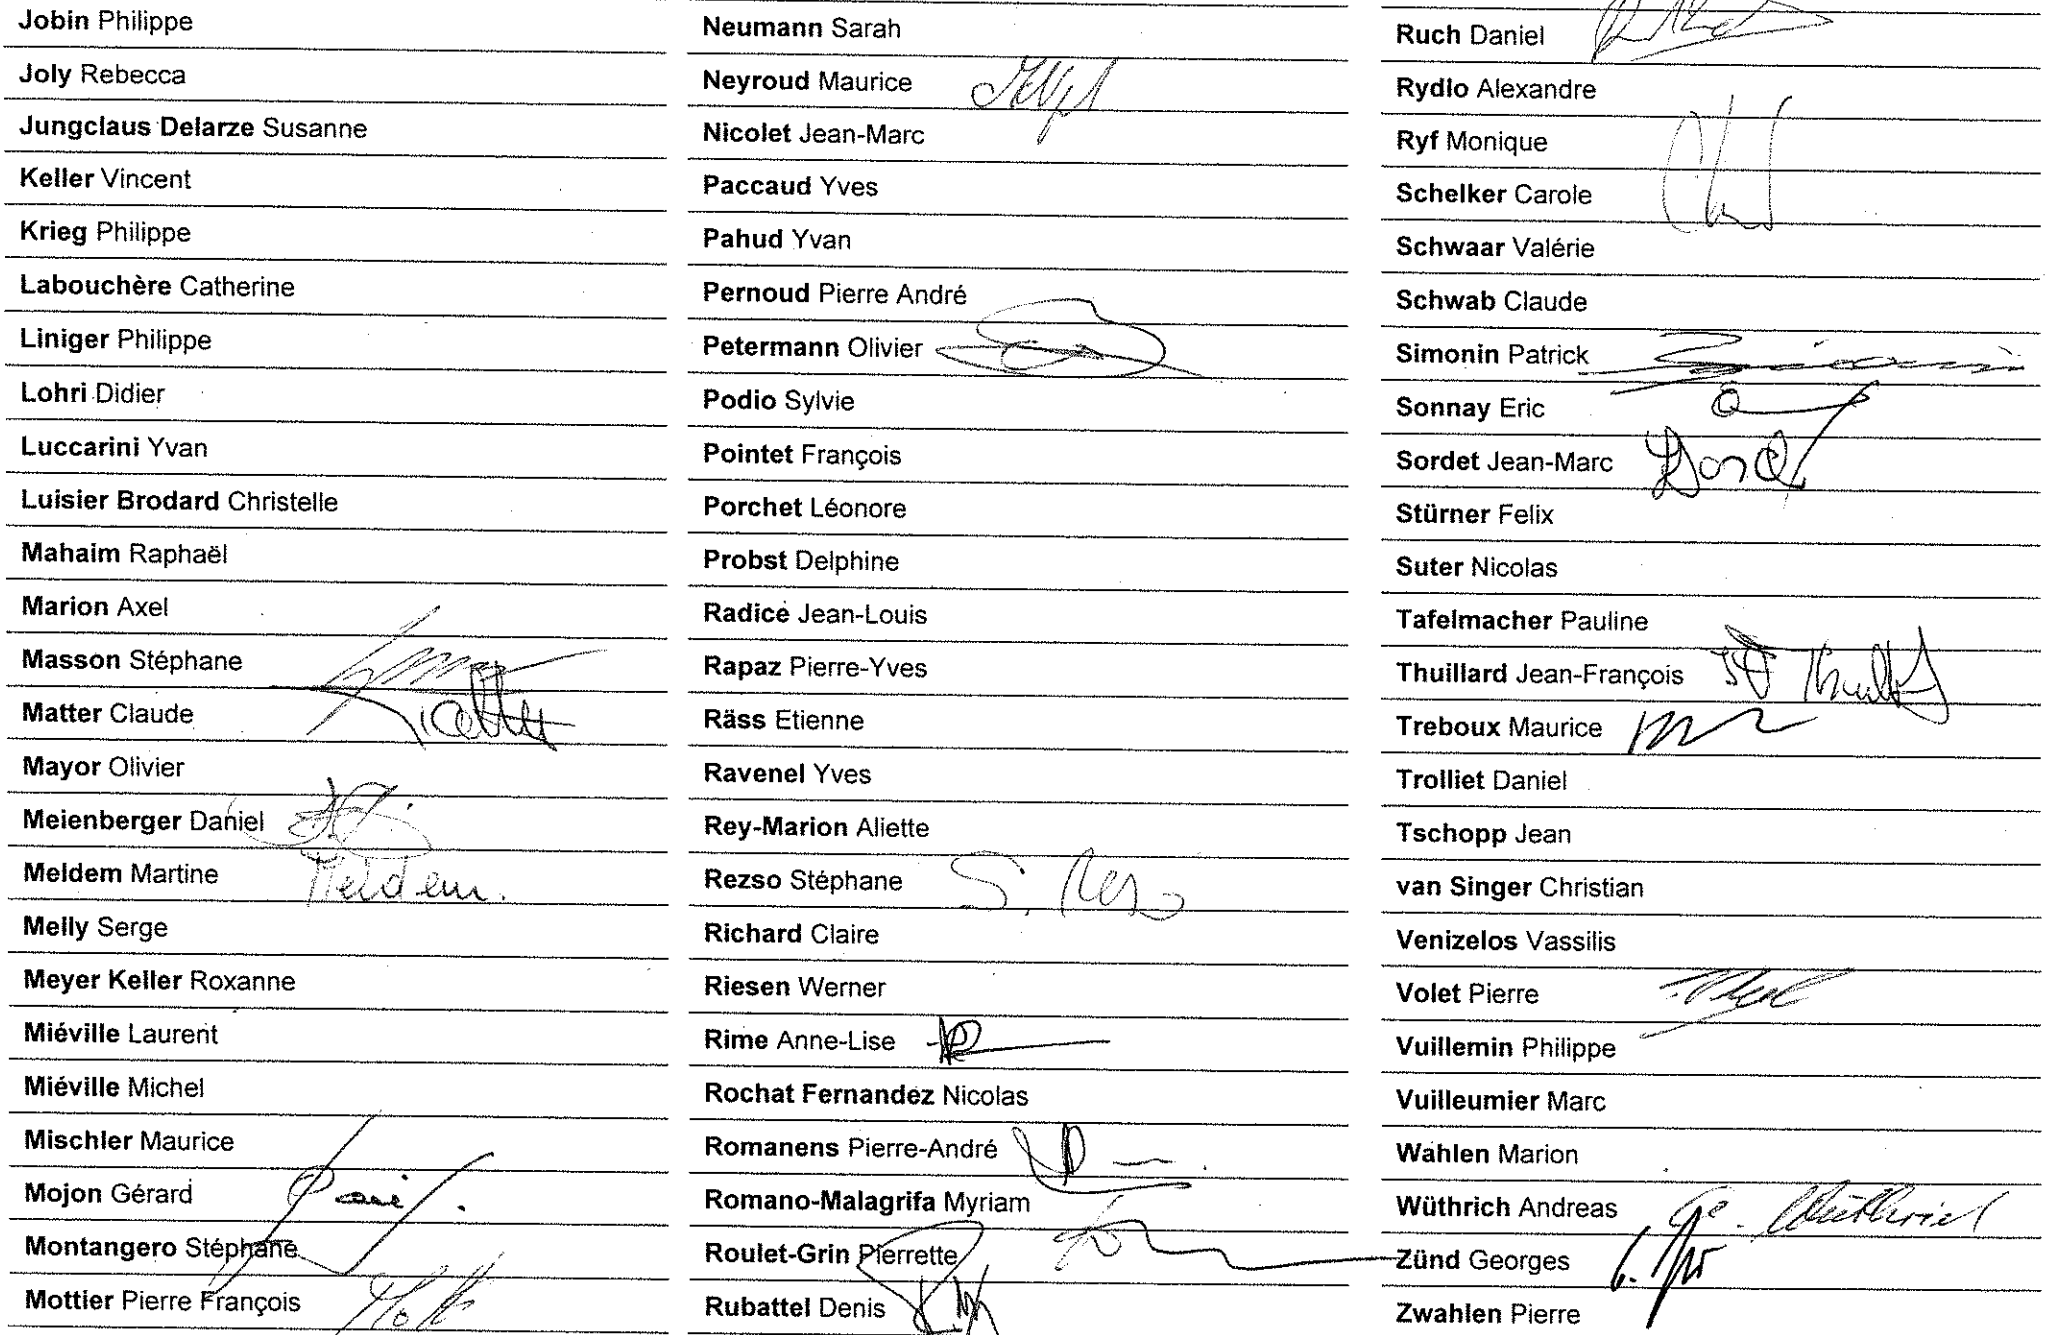 Jobin Philippe
Joly Rebecca
Jungclaus Delarze Susanne
Keller Vincent
Krieg Philippe
Labouchère Catherine
Liniger Philippe
Lohri Didier
Luccarini Yvan
Luisier Brodard Christelle
Mahaim Raphaël
Marion Axel
Masson Stéphane
Matter Claude
Mayor Olivier
Meienberger Daniel
Meldem Martine Meldem.
Melly Serge
Meyer Keller Roxanne
Miéville Laurent
Miéville Michel
Mischler Maurice
Mojon Gérard
Montangero Stéphane
Mottier Pierre François
Neumann Sarah
Neyroud Maurice
Nicolet Jean-Marc
Paccaud Yves
Pahud Yvan
Pernoud Pierre André
Petermann Olivier
Podio Sylvie
Pointet François
Porchet Léonore
Probst Delphine
Radice Jean-Louis
Rapaz Pierre-Yves
Räss Etienne
Ravenel Yves
Rey-Marion Aliette
Rezso Stéphane S. Rezso
Richard Claire
Riesen Werner
Rime Anne-Lise
Rochat Fernandez Nicolas
Romanens Pierre-André
Romano-Malagrifa Myriam
Roulet-Grin Pierrette
Rubattel Denis
Ruch Daniel
Rydlo Alexandre
Ryf Monique
Schelker Carole
Schwaar Valérie
Schwab Claude
Simonin Patrick
Sonnay Eric
Sordet Jean-Marc
Stürner Felix
Suter Nicolas
Tafelmacher Pauline
Thuillard Jean-François
Treboux Maurice
Trolliet Daniel
Tschopp Jean
van Singer Christian
Venizelos Vassilis
Volet Pierre
Vuillemin Philippe
Vuilleumier Marc
Wahlen Marion
Wüthrich Andreas Wüthrich
Zünd Georges
Zwahlen Pierre